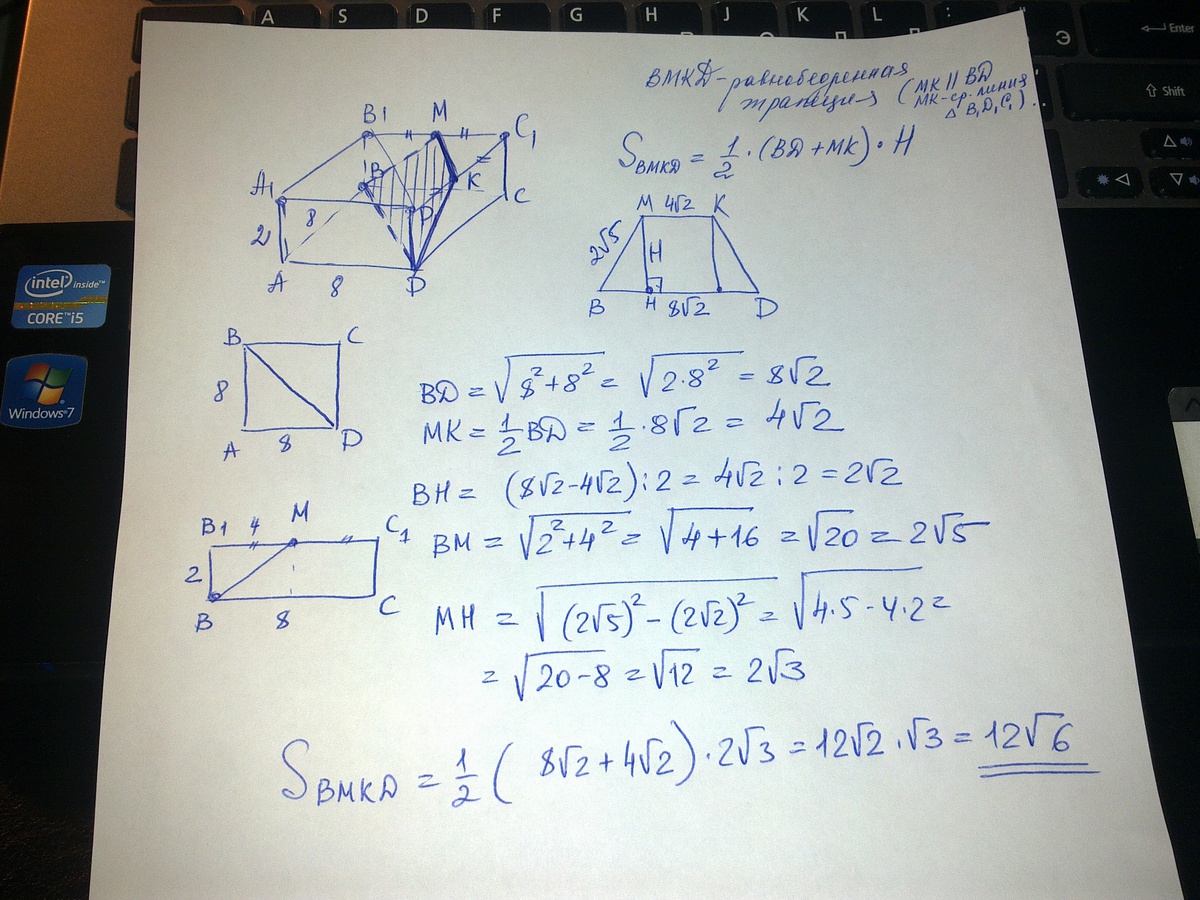 A S D F G H J K L :
Э
Enter
Shift
intel inside™
CORE™i5
Windows®7
BMKD - равнобедренная
трапеция (MK || BD
MK - ср. линия
△ B₁D₁C₁).
S_BMKD = 1/2 · (BD + MK) · H
B1 M C₁
A₁ B K
8 D₁ C
2
A 8 D
M 4√2 K
2√5 H
B H 8√2 D
B C
8
A 8 D
BD = √(8² + 8²) = √(2·8²) = 8√2
MK = 1/2 BD = 1/2 · 8√2 = 4√2
BH = (8√2 - 4√2) : 2 = 4√2 : 2 = 2√2
B1 4 M C1
2
B 8 C
BM = √(2² + 4²) = √(4 + 16) = √20 = 2√5
MH = √((2√5)² - (2√2)²) = √(4·5 - 4·2) =
= √(20 - 8) = √12 = 2√3
S_BMKD = 1/2 (8√2 + 4√2) · 2√3 = 12√2 · √3 = 12√6